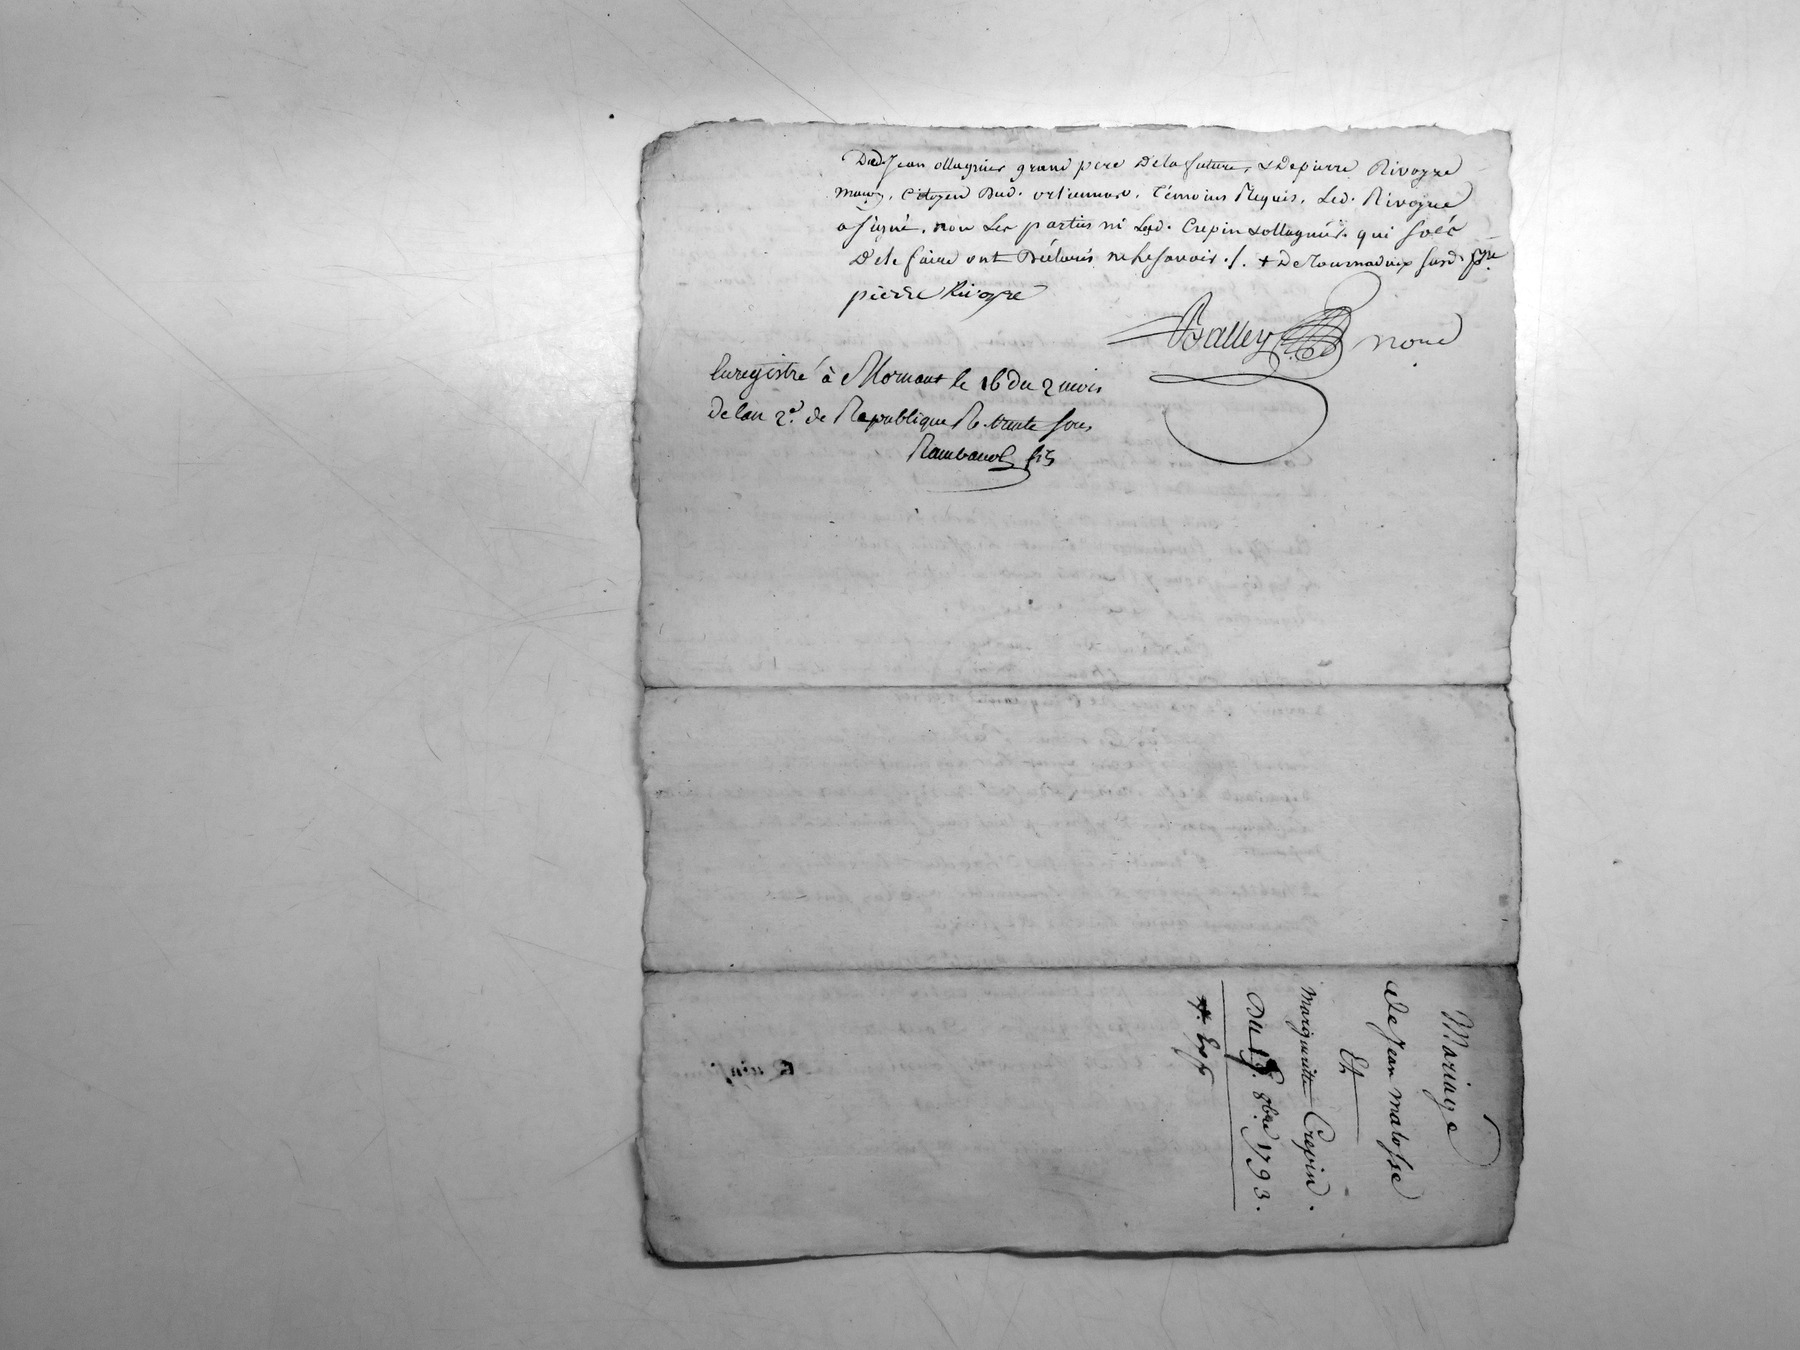 Dud. Jean ollagnier grand pere De la future, & De pierre Rivoyre
maçon, Citoyen Dud. orliennas, témoins Requis, Led. Rivoyre
a signé, non Les parties ni Lesd. Crepin & ollagnier qui
De le faire ont Déclarés ne le savoir ./.
pierre Rivoyre
Balley noue
Enregistré à Mornant le 16 du 2 mois
de lan 2e. de Republique R. trente sous
Mariage
de Jean matosse
Et
Marguerite Crepin.
Du 19. 8bre 1793.